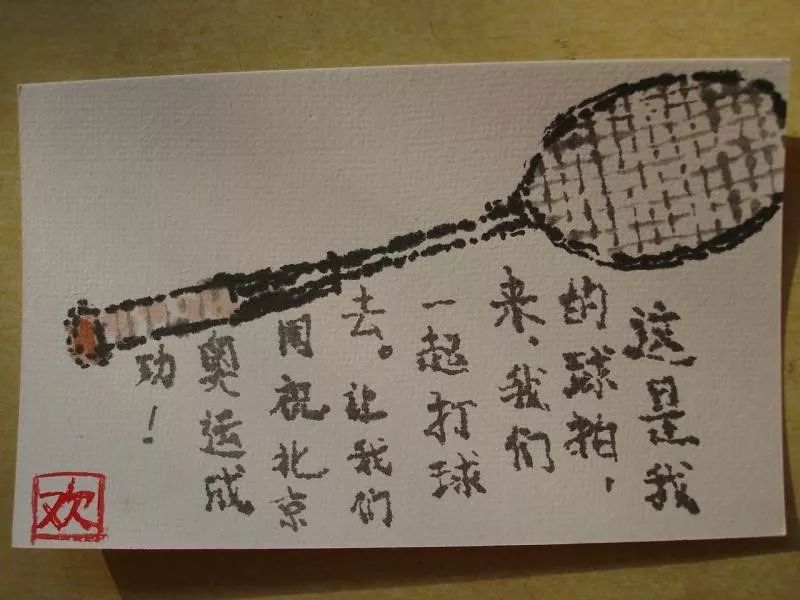 这是我
的球拍，
来、我们
一起打球
去。让我们
同祝北京
奥运成
功！
欢